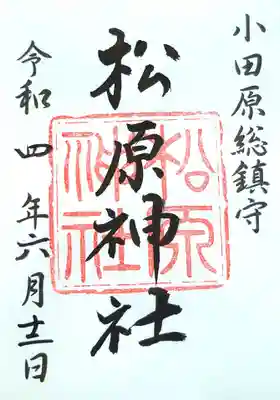 小田原総鎮守
松原神社
松原神社
令和四年六月十二日